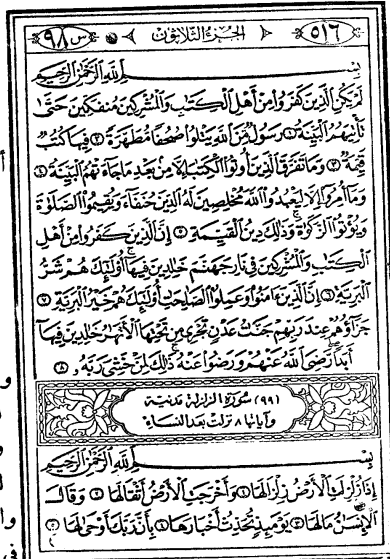 ٥١٦ الجزء الثلاثون س ٩٨
بِسْمِ اللَّهِ الرَّحْمَٰنِ الرَّحِيمِ
لَمْ يَكُنِ الَّذِينَ كَفَرُوا مِنْ أَهْلِ الْكِتَابِ وَالْمُشْرِكِينَ مُنْفَكِّينَ حَتَّىٰ
تَأْتِيَهُمُ الْبَيِّنَةُ ١ رَسُولٌ مِنَ اللَّهِ يَتْلُوا صُحُفًا مُطَهَّرَةً ٢ فِيهَا كُتُبٌ
قَيِّمَةٌ ٣ وَمَا تَفَرَّقَ الَّذِينَ أُوتُوا الْكِتَابَ إِلَّا مِنْ بَعْدِ مَا جَاءَتْهُمُ الْبَيِّنَةُ ٤
وَمَا أُمِرُوا إِلَّا لِيَعْبُدُوا اللَّهَ مُخْلِصِينَ لَهُ الدِّينَ حُنَفَاءَ وَيُقِيمُوا الصَّلَاةَ
وَيُؤْتُوا الزَّكَاةَ وَذَٰلِكَ دِينُ الْقَيِّمَةِ ٥ إِنَّ الَّذِينَ كَفَرُوا مِنْ أَهْلِ
الْكِتَابِ وَالْمُشْرِكِينَ فِي نَارِ جَهَنَّمَ خَالِدِينَ فِيهَا أُولَٰئِكَ هُمْ شَرُّ
الْبَرِيَّةِ ٦ إِنَّ الَّذِينَ آمَنُوا وَعَمِلُوا الصَّالِحَاتِ أُولَٰئِكَ هُمْ خَيْرُ الْبَرِيَّةِ ٧
جَزَاؤُهُمْ عِنْدَ رَبِّهِمْ جَنَّاتُ عَدْنٍ تَجْرِي مِنْ تَحْتِهَا الْأَنْهَارُ خَالِدِينَ فِيهَا
أَبَدًا رَضِيَ اللَّهُ عَنْهُمْ وَرَضُوا عَنْهُ ذَٰلِكَ لِمَنْ خَشِيَ رَبَّهُ ٨
(٩٩) سورة الزلزلة مدنية
وآياتها ٨ نزلت بعد النساء
بِسْمِ اللَّهِ الرَّحْمَٰنِ الرَّحِيمِ
إِذَا زُلْزِلَتِ الْأَرْضُ زِلْزَالَهَا ١ وَأَخْرَجَتِ الْأَرْضُ أَثْقَالَهَا ٢ وَقَالَ
الْإِنْسَانُ مَا لَهَا ٣ يَوْمَئِذٍ تُحَدِّثُ أَخْبَارَهَا ٤ بِأَنَّ رَبَّكَ أَوْحَىٰ لَهَا ٥